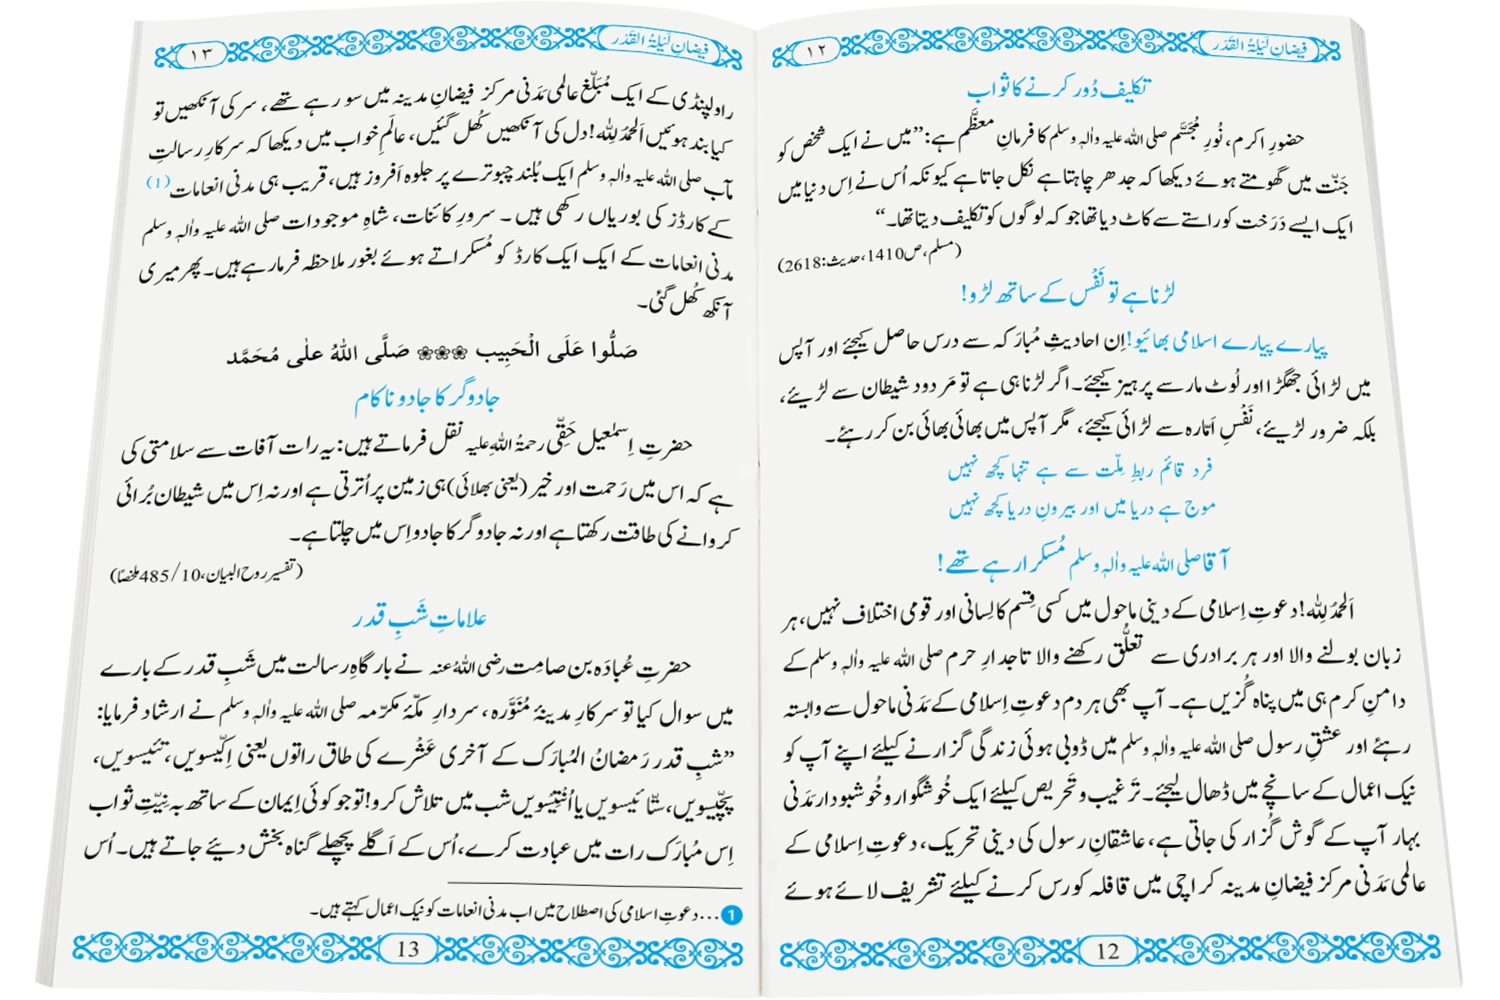 فیضانِ لَیْلَۃُ الْقَدْر
۱۲
تکلیف دُور کرنے کا ثواب
حضورِ اکرم، نُورِ مُجَسَّم صلی اللہ علیہ واٰلہٖ وسلم کا فرمانِ معظَّم ہے: ”میں نے ایک شخص کو
جَنّت میں گھومتے ہوئے دیکھا کہ جدھر چاہتا ہے نکل جاتا ہے کیونکہ اُس نے اِس دنیا میں
ایک ایسے دَرَخت کو راستے سے کاٹ دیا تھا جو کہ لوگوں کو تکلیف دیتا تھا۔“
(مسلم، ص1410، حدیث: 2618)
لڑنا ہے تو نَفْس کے ساتھ لڑو!
پیارے پیارے اسلامی بھائیو! اِن احادیثِ مُبارَکہ سے درس حاصل کیجئے اور آپس
میں لڑائی جھگڑا اور لُوٹ مار سے پرہیز کیجئے۔ اگر لڑنا ہی ہے تو مَردود شیطان سے لڑیئے،
بلکہ ضرور لڑیئے، نَفْسِ اَمّارہ سے لڑائی کیجئے، مگر آپس میں بھائی بھائی بن کر رہئے۔
فرد قائم ربطِ مِلّت سے ہے تنہا کچھ نہیں
موج ہے دریا میں اور بیرونِ دریا کچھ نہیں
آقا صلی اللہ علیہ واٰلہٖ وسلم مُسکرا رہے تھے!
اَلحمدُ لِلّٰہ! دعوتِ اِسلامی کے دینی ماحول میں کسی قِسم کا لِسانی اور قومی اختلاف نہیں، ہر
زبان بولنے والا اور ہر برادری سے تعلُّق رکھنے والا تاجدارِ حرم صلی اللہ علیہ واٰلہٖ وسلم کے
دامنِ کرم ہی میں پناہ گُزیں ہے۔ آپ بھی ہر دم دعوتِ اِسلامی کے مَدَنی ماحول سے وابستہ
رہئے اور عشقِ رسول صلی اللہ علیہ واٰلہٖ وسلم میں ڈوبی ہوئی زندگی گزارنے کیلئے اپنے آپ کو
نیک اعمال کے سانچے میں ڈھال لیجئے۔ ترغیب و تحریص کیلئے ایک خُوشگوار و خُوشبودار مَدَنی
بہار آپ کے گوش گُزار کی جاتی ہے، عاشقانِ رسول کی دینی تحریک، دعوتِ اِسلامی کے
عالمی مَدَنی مرکز فیضانِ مدینہ کراچی میں قافلہ کورس کرنے کیلئے تشریف لائے ہوئے
12
فیضانِ لَیْلَۃُ الْقَدْر
۱۳
راولپنڈی کے ایک مُبَلِّغ عالمی مَدَنی مرکز فیضانِ مدینہ میں سو رہے تھے، سر کی آنکھیں تو
کیا بند ہوئیں اَلحمدُ لِلّٰہ! دل کی آنکھیں کُھل گئیں، عالَمِ خواب میں دیکھا کہ سرکارِ رسالتِ
مآب صلی اللہ علیہ واٰلہٖ وسلم ایک بُلند چبوترے پر جلوہ اَفروز ہیں، قریب ہی مدنی انعامات (1)
کے کارڈز کی بوریاں رکھی ہیں۔ سرورِ کائنات، شاہِ موجودات صلی اللہ علیہ واٰلہٖ وسلم
مدنی انعامات کے ایک ایک کارڈ کو مُسکراتے ہوئے بغور ملاحظہ فرما رہے ہیں۔ پھر میری
آنکھ کُھل گئی۔
صَلُّوا عَلَی الْحَبِیب ❀❀❀ صَلَّی اللهُ علٰی مُحَمَّد
جادوگر کا جادو ناکام
حضرتِ اِسمٰعیل حَقّی رحمۃُ اللہِ علیہ نقل فرماتے ہیں: یہ رات آفات سے سلامتی کی
ہے کہ اس میں رَحمت اور خیر (یعنی بھلائی) ہی زمین پر اُترتی ہے اور نہ اِس میں شیطان بُرائی
کروانے کی طاقت رکھتا ہے اور نہ جادوگر کا جادو اِس میں چلتا ہے۔
(تفسیر روح البیان، 10/485 ملخصًا)
علاماتِ شَبِ قدر
حضرتِ عُبادَہ بن صامِت رضی اللہُ عنہ نے بارگاہِ رسالت میں شَبِ قدر کے بارے
میں سوال کیا تو سرکارِ مدینۂ مُنَوَّرہ، سردارِ مکّۂ مکرّمہ صلی اللہ علیہ واٰلہٖ وسلم نے ارشاد فرمایا:
”شبِ قدر رَمضانُ المُبارَک کے آخری عَشْرے کی طاق راتوں یعنی اِکّیسویں، تئیسویں،
پچّیسویں، ستّائیسویں یا اُنتِیسویں شب میں تلاش کرو! تو جو کوئی اِیمان کے ساتھ بہ نِیَّتِ ثواب
اِس مُبارَک رات میں عبادت کرے، اُس کے اَگلے پچھلے گناہ بخش دیئے جاتے ہیں۔ اُس
1 ...دعوتِ اسلامی کی اصطلاح میں اب مدنی انعامات کو نیک اعمال کہتے ہیں۔
13